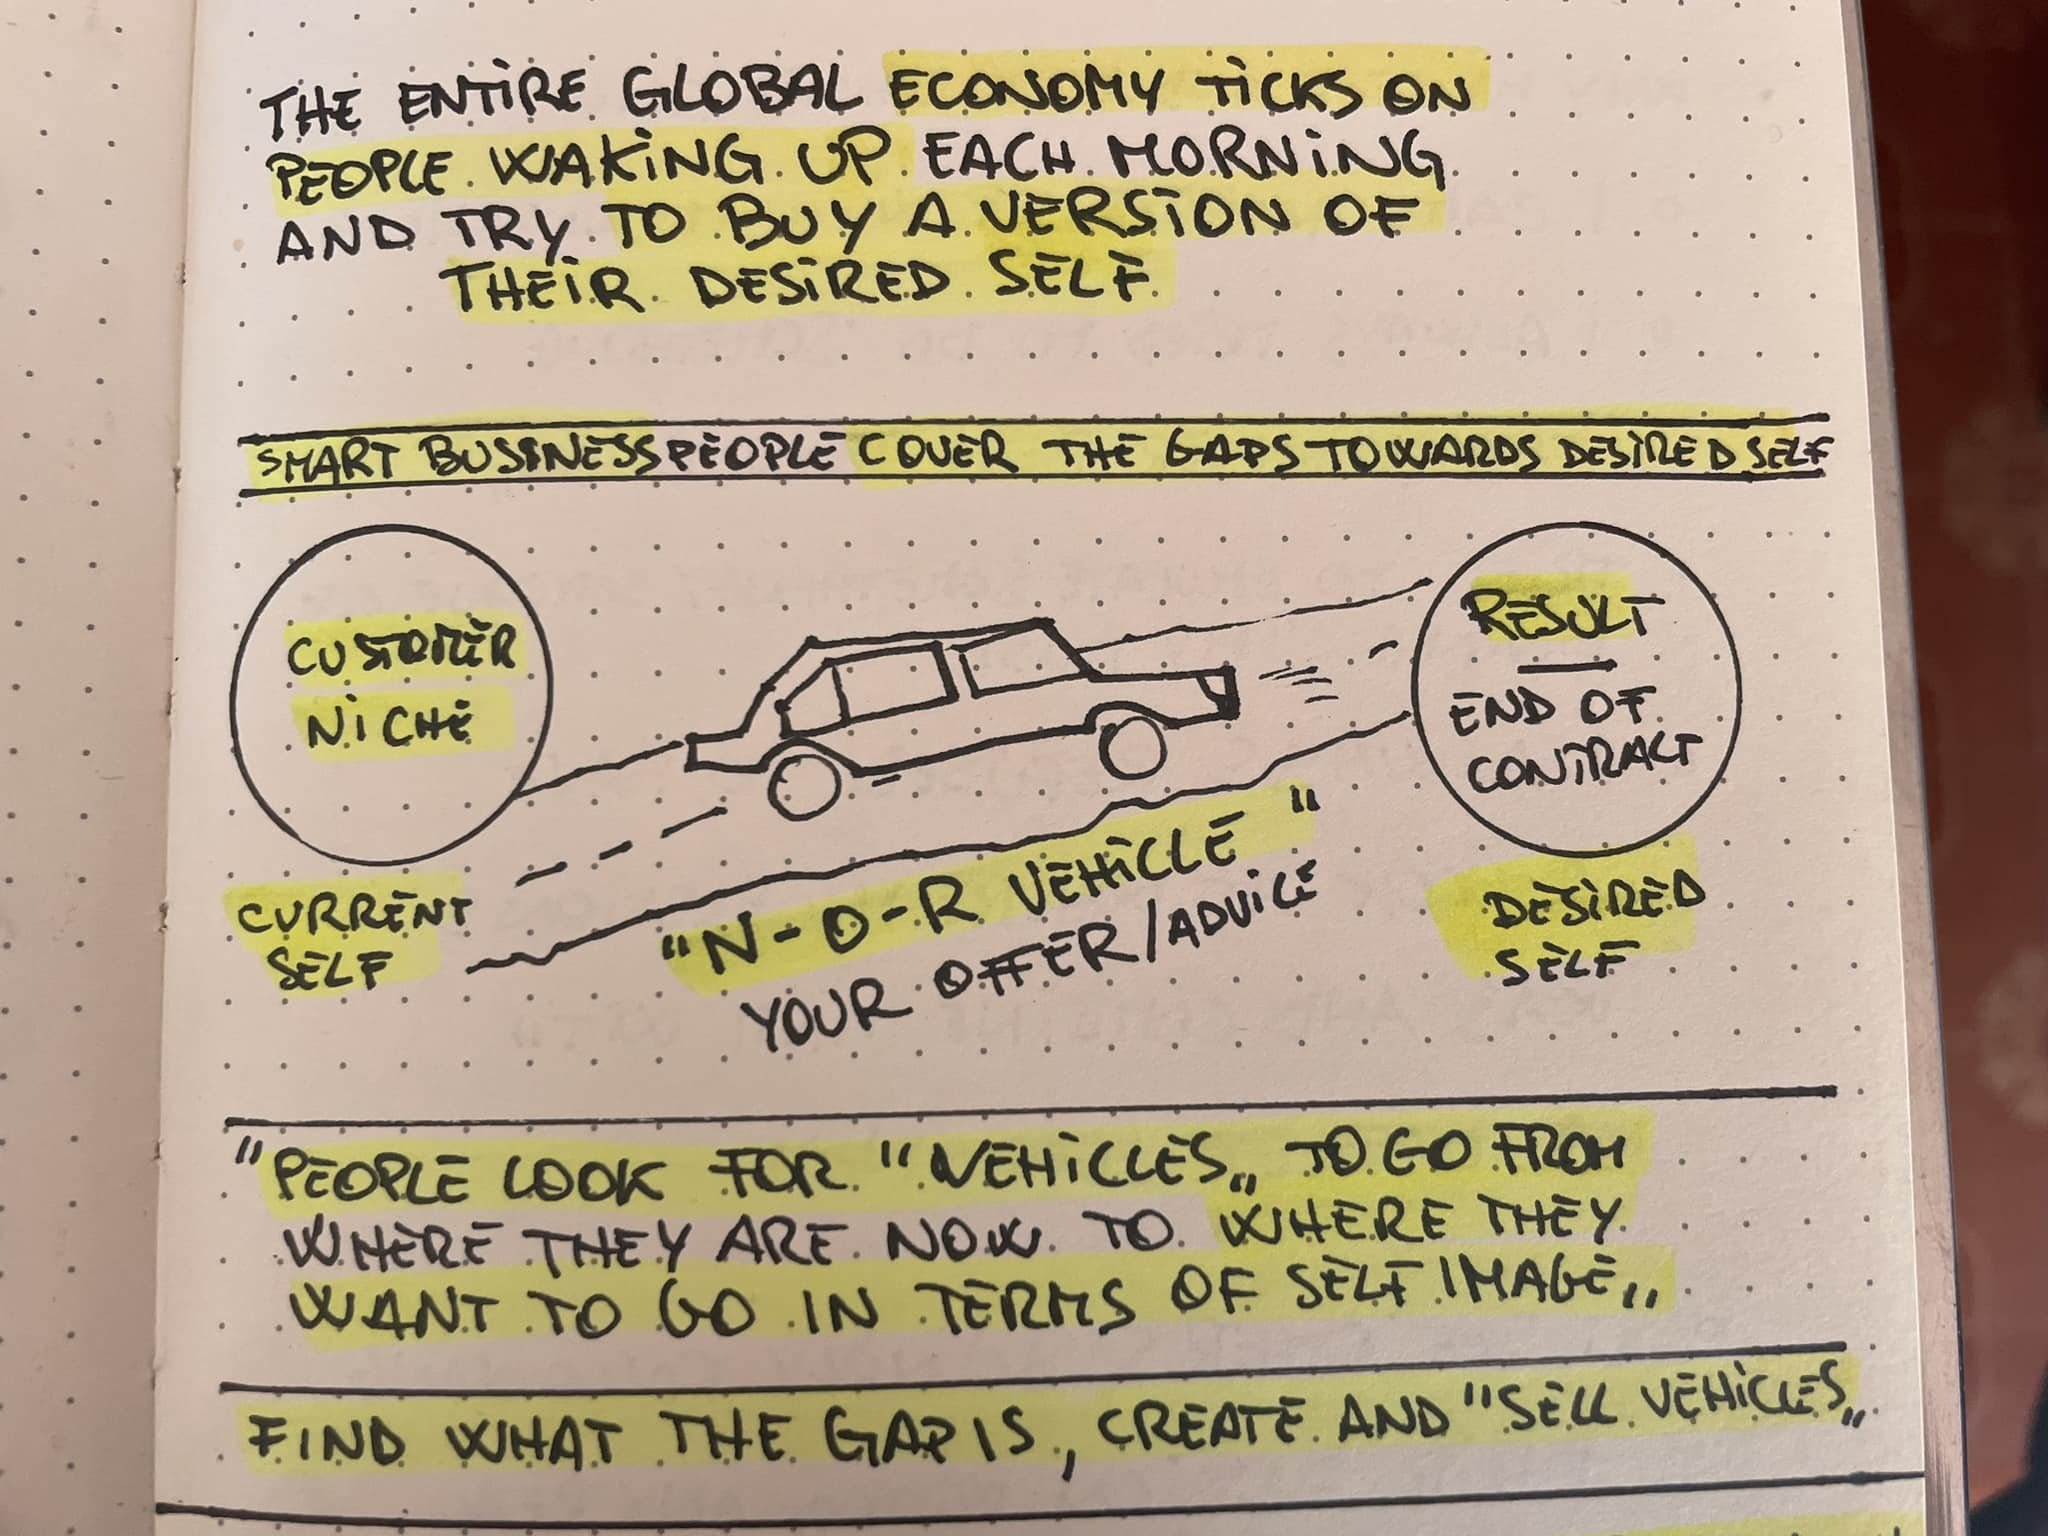 THE ENTIRE GLOBAL ECONOMY TICKS ON
PEOPLE WAKING UP EACH MORNING
AND TRY TO BUY A VERSION OF
THEIR DESIRED SELF
SMART BUSINESSPEOPLE COVER THE GAPS TOWARDS DESIRED SELF
CUSTOMER
NICHE
CURRENT
SELF
"N-O-R VEHICLE"
YOUR OFFER/ADVICE
RESULT
—
END OF
CONTRACT
DESIRED
SELF
"PEOPLE LOOK FOR "VEHICLES„ TO GO FROM
WHERE THEY ARE NOW TO WHERE THEY
WANT TO GO IN TERMS OF SELF IMAGE„
FIND WHAT THE GAP IS, CREATE AND "SELL VEHICLES„